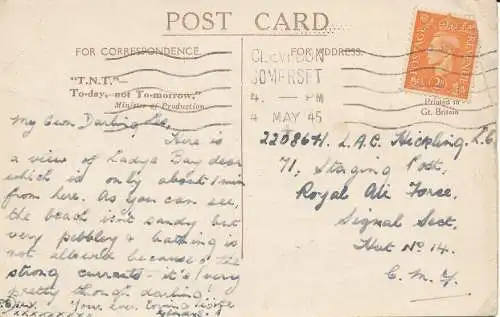 POST CARD
FOR CORRESPONDENCE
FOR ADDRESS.
"T.N.T."
To-day, not To-morrow."
Minister of Production
CLEVEDON
SOMERSET
4. — PM
4 MAY 45
POSTAGE
Printed in
Gt. Britain
My Own Darling
Here is
a view of Ladye Bay dear
which is only about 1 min
from here. As you can see,
the beach isn't sandy but
very pebbley & bathing is
not allowed because of the
strong currents - it's very
pretty though darling!
Your ever loving
xxxxxxxxxx
L.A.C. Hickling. L.G.
71, Staging Post,
Royal Air Force,
Signal Sect,
Hut No 14.
C.M.F.